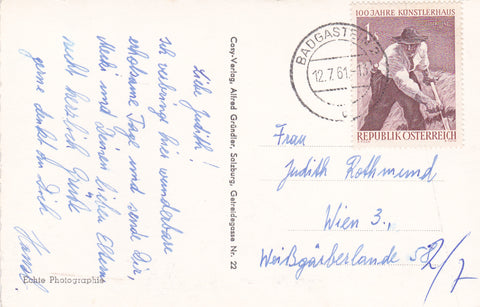 Liebe Judith!
Ich verbringe hier wunderbare
erholsame Tage und sende Dir,
Medi und Deinen lieben Eltern
recht herzlich Grüße
gerne denkt an Dich
Hansi
Echte Photographie
Cosy-Verlag, Alfred Gründler, Salzburg, Getreidegasse Nr. 22
BADGASTEIN
12.7.61
100 JAHRE KÜNSTLERHAUS
1S
REPUBLIK ÖSTERREICH
Frau
Judith Rothmund
Wien 3.,
Weißgärberlande
2/7